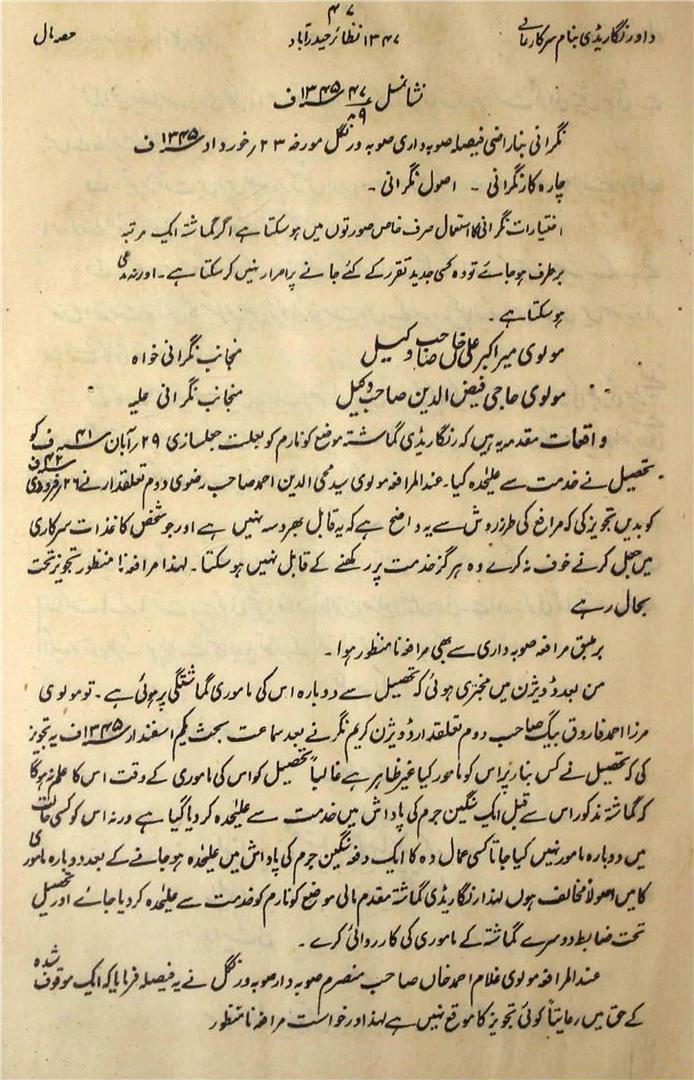 ۴۷
داور نگاریڈی بنام سرکار عالی ۱۳۴۷ نظائر حیدرآباد حصہ مال
نشانمسل ۴۷/۹ ۱۳۴۵ف
نگرانی بناراضی فیصلہ صوبہ داری صوبہ ورنگل مورخہ ۲۳؍ خورداد ۱۳۴۵ف
چارہ کار نگرانی ۔ اصول نگرانی ۔
اختیارات نگرانی کا استعمال صرف خاص صورتوں میں ہوسکتا ہے اگر گماشتہ ایک مرتبہ
برطرف ہوجائے تو وہ کسی جدید تقرر کے کئے جانے پر اصرار نہیں کرسکتا ہے۔ اور نہ مدعی
ہوسکتا ہے ۔
مولوی میر اکبر علی خاں صاحب وکیل منجانب نگرانی خواہ
مولوی حاجی فیض الدین صاحب وکیل منجانب نگرانی علیہ
واقعات مقدمہ یہ ہیں کہ رنگاریڈی گماشتہ موضع کونارم کو بعلت جعلسازی ۲۹؍ آبان ۴۱ف کو
تحصیل نے خدمت سے علیحدہ کیا۔ عندالمرافعہ مولوی سید محی الدین احمد صاحب رضوی دوم تعلقدار نے ۲۶؍ فروردی ۴۲ف
کو بدیں تجویز کی کہ مرافع کی طرز روش سے یہ واضح ہے کہ یہ قابل بھروسہ نہیں ہے اور جو شخص کاغذات سرکاری
میں جعل کرنے خوف نہ کرے وہ ہرگز خدمت پر رکھنے کے قابل نہیں ہوسکتا۔ لہذا مرافعہ نامنظور تجویز تحت
بحال رہے
برطبق مرافعہ صوبہ داری سے بھی مرافعہ نامنظور ہوا ۔
من بعد ڈویژن میں مخبری ہوئی کہ تحصیل سے دوبارہ اس کی ماموری گماشتگی پر ہوئی ہے ۔ تو مولوی
مرزا احمد فاروق بیگ صاحب دوم تعلقدار ڈویژن کریم نگر نے بعد سماعت بحث یکم اسفندار ۱۳۴۵ف یہ تجویز
کی کہ تحصیل نے کس بنا پر اس کو مامور کیا غیر ظاہر ہے غالباً تحصیل کو اس کی ماموری کے وقت اس کا علم نہ ہوگا
کہ گماشتہ مذکور اس سے قبل ایک سنگین جرم کی پاداش میں خدمت سے علیحدہ کردیا گیا ہے ورنہ اس کو کسی حالت
میں دوبارہ مامور نہیں کیا جاتا کسی عمال دہ کا ایک دفعہ سنگین جرم کی پاداش میں علیحدہ ہوجانے کے بعد دوبارہ ماموری
کا میں اصولاً مخالف ہوں لہذا رنگاریڈی گماشتہ مقدم مالی موضع کونارم کو خدمت سے علیحدہ کردیا جائے اور تحصیل
تحت ضابطہ دوسرے گماشتہ کے ماموری کی کارروائی کرے ۔
عندالمرافعہ مولوی غلام احمد خاں صاحب منصرم صوبہ دار صوبہ ورنگل نے یہ فیصلہ فرمایا کہ ایک موقوف شدہ
کے حق میں رعایتاً کوئی تجویز کا موقع نہیں ہے لہذا درخواست مرافعہ نامنظور